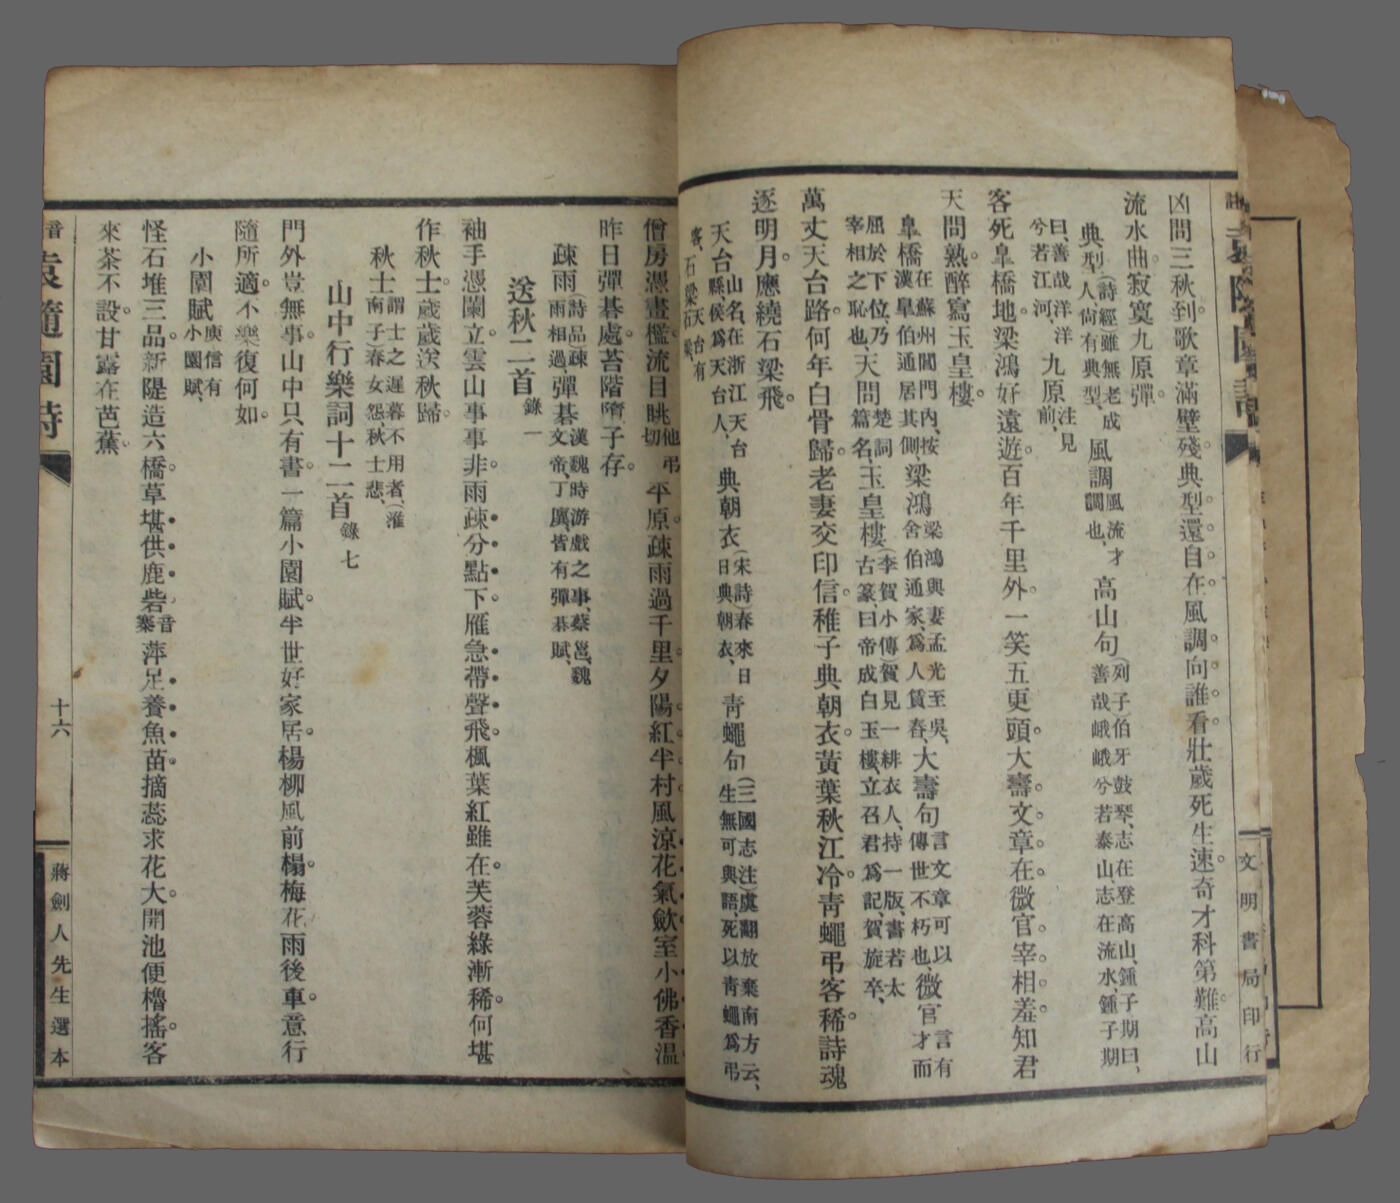 凶問三秋到歌章滿壁殘典型還自在風調向誰看壯歲死生速奇才科第難高山
流水曲寂寞九原彈
典型(詩經雖無老成人尙有典型、風調風流才調也、高山句(列子)伯牙鼓琴、志在登高山、鍾子期曰、善哉峨峨兮若泰山、志在流水、鍾子期
曰、善哉洋洋兮若江河、九原注見前、
客死皐橋地梁鴻好遠遊百年千里外一笑五更頭大壽文章在微官宰相羞知君
天問熟醉寫玉皇樓
皐橋在蘇州閶門內、按漢皐伯通居其側、梁鴻梁鴻與妻孟光至吳、舍伯通家、爲人賃舂、大壽句言文章可以傳世不朽也、微官言有才而
屈於下位、乃宰相之恥也、天問楚詞篇名、玉皇樓(李賀小傳)賀見一緋衣人、持一版、書若太古篆、曰帝成白玉樓、立召君爲記、賀旋卒、
萬丈天台路何年白骨歸老妻交印信稚子典朝衣黃葉秋江冷靑蠅弔客稀詩魂
逐明月應繞石梁飛
天台山名、在浙江天台縣、侯爲天台人、典朝衣(宋詩)春來日日典朝衣、靑蠅句(三國志注)虞翻放棄南方云、生無可與語、死以靑蠅爲弔
客、石梁天台有石梁、
僧房憑畫檻流目眺他弔切平原疎雨過千里夕陽紅半村風涼花氣斂室小佛香溫
昨日彈碁處苔階墮子存
疎雨(詩品)疎雨相過、彈碁漢魏時游戲之事、蔡邕、魏文帝、丁廙、皆有彈碁賦、
送秋二首錄一
袖手憑闌立雲山事事非雨疎分點下雁急帶聲飛楓葉紅雖在芙蓉綠漸稀何堪
作秋士歲歲送秋歸
秋士謂士之遲暮不用者(淮南子春女怨、秋士悲、
山中行樂詞十二首錄七
門外豈無事山中只有書一篇小園賦半世好家居楊柳風前榻梅花雨後車意行
隨所適不樂復何如
小園賦庾信有小園賦、
怪石堆三品新隄造六橋草堪供鹿砦音寨萍足養魚苗摘蕊求花大開池便櫓搖客
來茶不設甘露在芭蕉
音
袁隨園詩
十六
蔣劍人先生選本
文明書局印行